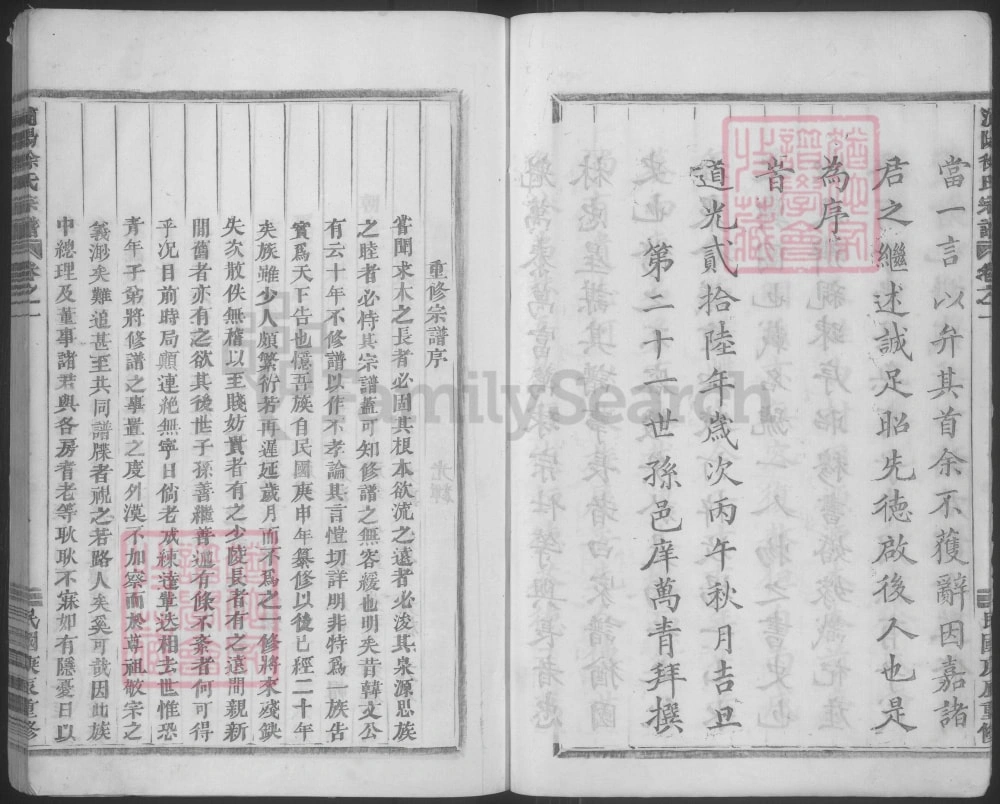 當一言以弁其首余不獲辭因嘉諸
君之繼述誠足昭先德啟後人也是
為序
旹
道光貳拾陸年歲次丙午秋月吉旦
第二十一世孫邑庠萬青拜撰
徐氏宗譜 卷之一 民國庚辰重修
重修宗譜序
嘗聞求木之長者必固其根本欲流之遠者必浚其泉源思族
之睦者必恃其宗譜蓋可知修譜之無容緩也明矣昔韓文公
有云十年不修譜以作不孝論其言愷切詳明非特爲一族告
實爲天下告也憶吾族自民國庚申年纂修以後已經二十年
矣族雖少人頗繁衍若再遲延歲月而不爲之一修將來殘缺
失次散佚無稽以至賤妨貴者有之少陵長者有之遠間親新
間舊者亦有之欲其後世子孫善繼善述有條不紊者何可得
乎况目前時局顛連絶無寧日倘老成練達輩迭相去世惟恐
青年子弟將修譜之事置之度外漠不加察而於尊祖敬宗之
義渺矣難追甚至共同譜牒者視之若路人矣奚可哉因此族
中總理及董事諸君與各房耆老等耿耿不寐如有隱憂日以
徐氏宗譜 卷之一 民國庚辰重修
FamilySearch